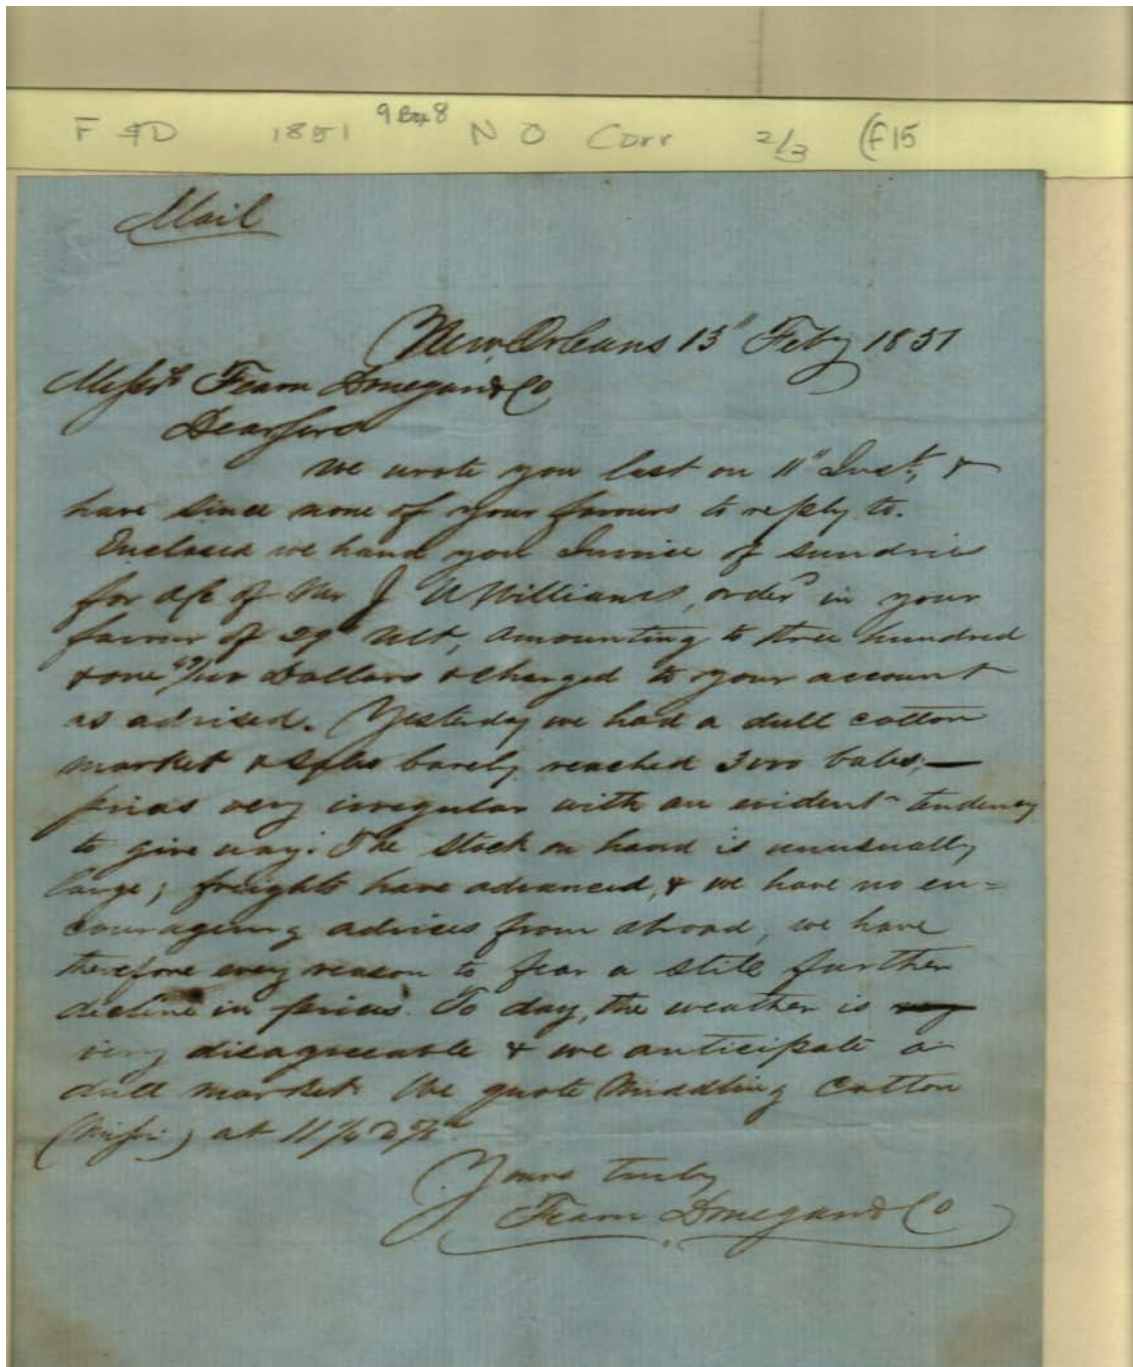 F & D 1851 9 Box 8 N O Corr 2/3 (F15
Mail
New Orleans 13" Feby 1851
Messrs Fearn Donegan & Co
Dear Sirs
We wrote you last on 11" Inst, &
have since none of your favours to reply to.
Enclosed we hand you Invoice of sundries
for a/c of Mr J Williams, order in your
favour of 29" Ult, amounting to three hundred
& one /100 Dollars & charged to your account
as advised. Yesterday we had a dull cotton
market & Sales barely reached 3000 bales,—
prices very irregular with an evident tendency
to give way. The stock on hand is unusually
large; freights have advanced, & we have no en=
couraging advices from abroad, we have
therefore every reason to fear a still further
decline in prices. To day, the weather is
very disagreeable & we anticipate a
dull market. We quote Middling Cotton
(Missi.) at
Yours truly
Fearn Donegan & Co